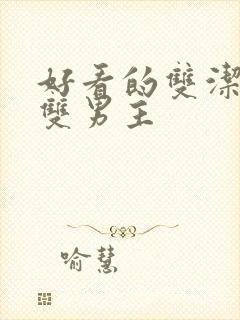 好看的雙潔
雙男主
喻慧